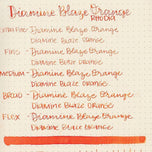 Diamine Blaze Orange
Rhodia
Extra Fine - Diamine Blaze Orange
Diamine Blaze Orange
Fine - Diamine Blaze Orange
Diamine Blaze Orange
Medium - Diamine Blaze Orange
Diamine Blaze Orange
Broad - Diamine Blaze Orange
Diamine Blaze Orange
Flex - Diamine Blaze Orange
Diamine Blaze Orange